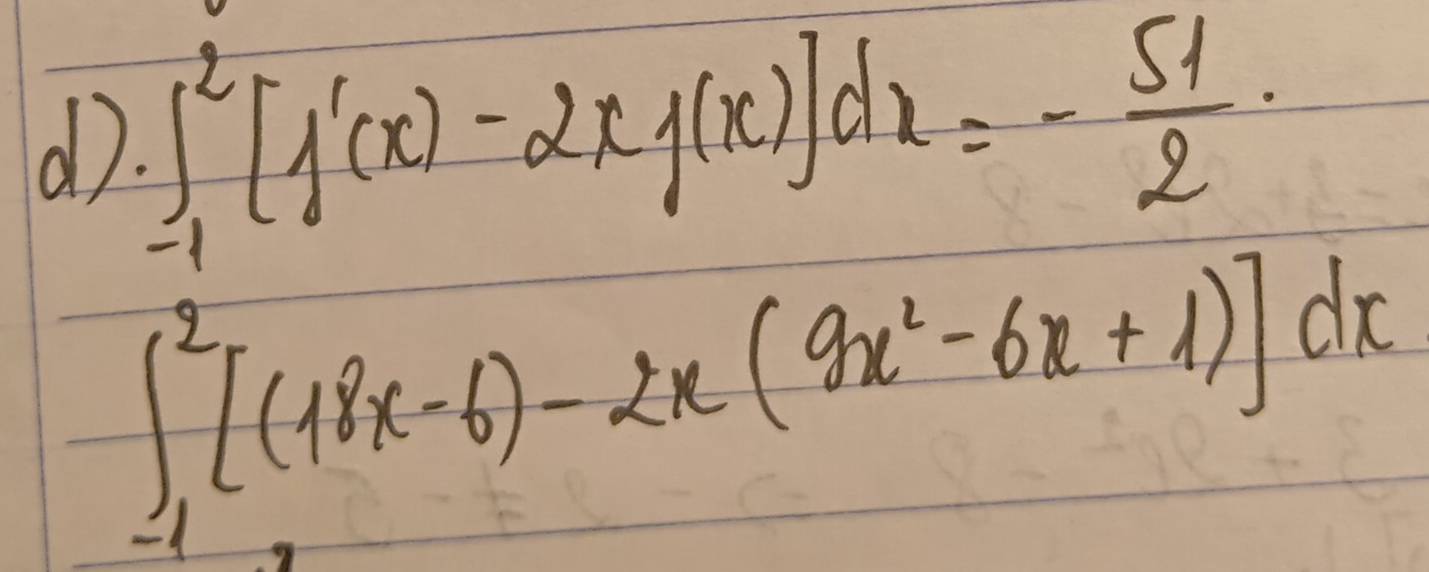 d). ∫_{-1}^{2} [f'(x) - 2x f(x)] dx = - 51/2 .
∫_{-1}^{2} [(18x - 6) - 2x (9x² - 6x + 1)] dx